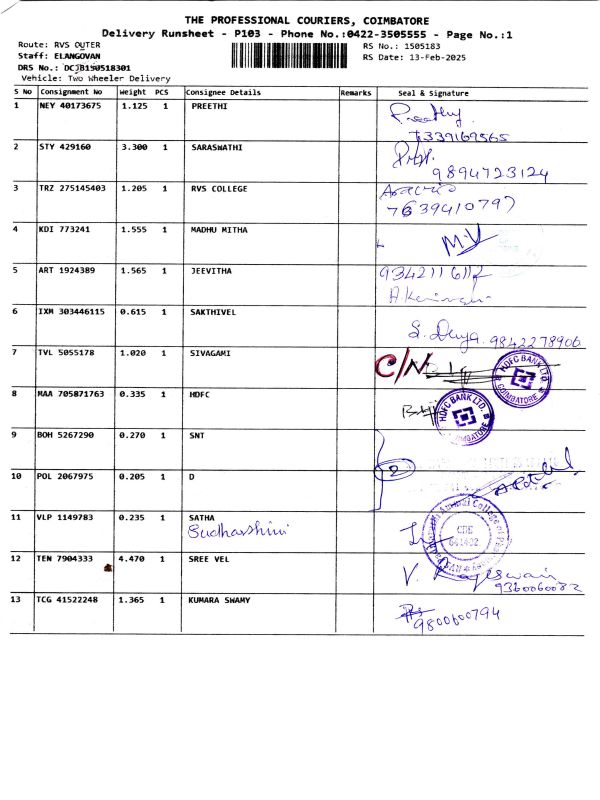 THE PROFESSIONAL COURIERS, COIMBATORE
Delivery Runsheet - P103 - Phone No.:0422-3505555 - Page No.:1
Route: RVS OUTER RS No.: 1505183
Staff: ELANGOVAN RS Date: 13-Feb-2025
DRS No.: DCJB150518301
Vehicle: Two Wheeler Delivery
S No Consignment No Weight PCS Consignee Details Remarks Seal & Signature
1 NEY 40173675 1.125 1 PREETHI Preethy
7339169565
2 STY 429160 3.300 1 SARASWATHI
9894723124
3 TRZ 275145403 1.205 1 RVS COLLEGE
7639410797
4 KDI 773241 1.555 1 MADHU MITHA M.V
5 ART 1924389 1.565 1 JEEVITHA 9342111 6112
6 IXM 303446115 0.615 1 SAKTHIVEL
S. Divya. 9842278906
7 TVL 5055178 1.020 1 SIVAGAMI C/N
HDFC BANK LTD. COIMBATORE
8 MAA 705871763 0.335 1 HDFC
HDFC BANK LTD. COIMBATORE
9 BOH 5267290 0.270 1 SNT
2
10 POL 2067975 0.205 1 D
11 VLP 1149783 0.235 1 SATHA
Sudharshini
CBE
641402
12 TEN 7904333 4.470 1 SREE VEL
V. Rajeswari
9360060082
13 TCG 41522248 1.365 1 KUMARA SWAMY
9800600794